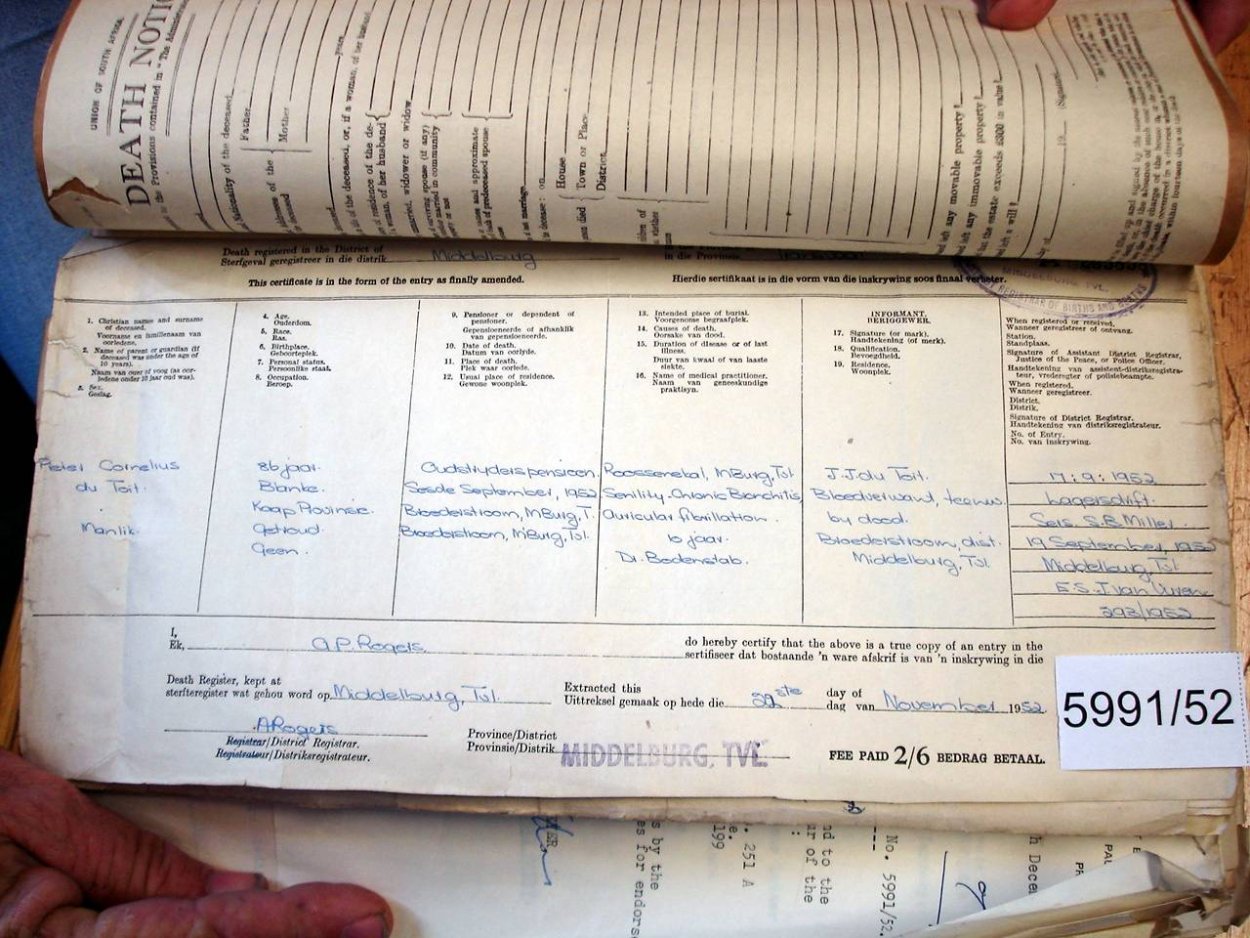 UNION OF SOUTH AFRICA
DEATH NOTI
Provisions contained in "The Admini
Nationality of the deceased
Father
Mother
years
of the deceased, or, if a woman, of her husband
residence of the de-
of her husband
married, widower or widow
spouse (if any)
married in community
or not
and approximate
of predeceased spouse
marriage
decease: on
House
Town or Place
District
left any movable property?
left any immovable property?
the estate exceeds £300 in value?
left a will?
19
(Signature)
Death registered in the District of
Sterfgeval geregistreer in die distrik Middelburg
in die Provinsie
This certificate is in the form of the entry as finally amended.
Hierdie sertifikaat is in die vorm van die inskrywing soos finaal verbeter.
REGISTRAR OF BIRTHS AND DEATHS
1. Christian names and surname
of deceased.
Voorname en familienaam van
oorledene.
2. Name of parent or guardian (if
deceased was under the age of
10 years).
Naam van ouer of voog (as oor-
ledene onder 10 jaar oud was).
3. Sex.
Geslag.
4. Age.
Ouderdom.
5. Race.
Ras.
6. Birthplace.
Geboorteplek.
7. Personal status.
Persoonlike staat.
8. Occupation.
Beroep.
9. Pensioner or dependent of
pensioner.
Gepensioeneerde of afhanklik
van gepensioeneerde.
10. Date of death.
Datum van oorlyde.
11. Place of death.
Plek waar oorlede.
12. Usual place of residence.
Gewone woonplek.
13. Intended place of burial.
Voorgenome begraafplek.
14. Causes of death.
Oorsake van dood.
15. Duration of disease or of last
illness.
Duur van kwaal of van laaste
siekte.
16. Name of medical practitioner.
Naam van geneeskundige
praktisyn.
INFORMANT.
BERIGGEWER.
17. Signature (or mark).
Handtekening (of merk).
18. Qualification.
Bevoegdheid.
19. Residence.
Woonplek.
When registered or received.
Wanneer geregistreer of ontvang.
Station.
Standplaas.
Signature of Assistant District Registrar,
Justice of the Peace, or Police Officer.
Handtekening van assistent-distriksregistra-
teur, vrederegter of polisiebeampte.
When registered.
Wanneer geregistreer.
District.
Distrik.
Signature of District Registrar.
Handtekening van distriksregistrateur.
No. of Entry.
No. van inskrywing.
Pieter Cornelius
du Toit.
Manlik.
86 jaar.
Blanke.
Kaap Provinsie.
Getroud.
Geen.
Oudstryderspensioen.
Sesde September, 1952
Broederstroom, MBurg, T.
Broederstroom, MBurg, Tsl.
Roossenekal, MBurg, Tsl
Senility-Chronic Bronchitis
Auricular fibrillation.
10 jaar.
Dr. Bodenstab.
J.J. du Toit.
Bloedverwant, teenw.
by dood.
Broederstroom, dist.
Middelburg, Tsl
17:9:1952
Lagersdrift.
Sers. S.B. Miller.
19 September, 1952
Middelburg, Tsl
E.S.J. van Vuuren
293/1952
I,
Ek, A.P. Rogers
do hereby certify that the above is a true copy of an entry in the
sertifiseer dat bostaande 'n ware afskrif is van 'n inskrywing in die
Death Register, kept at
sterfteregister wat gehou word op Middelburg, Tsl.
Extracted this
Uittreksel gemaak op hede die 22ste
day of
dag van November 1952
ARogers
Registrar/District Registrar.
Registrateur/Distriksregistrateur.
Province/District
Provinsie/Distrik MIDDELBURG, TVL.
FEE PAID 2/6 BEDRAG BETAAL.
5991/52
s by the
es for endorse
251 A
199
nd to the
ur of the
No. 5991/52.
h Decem